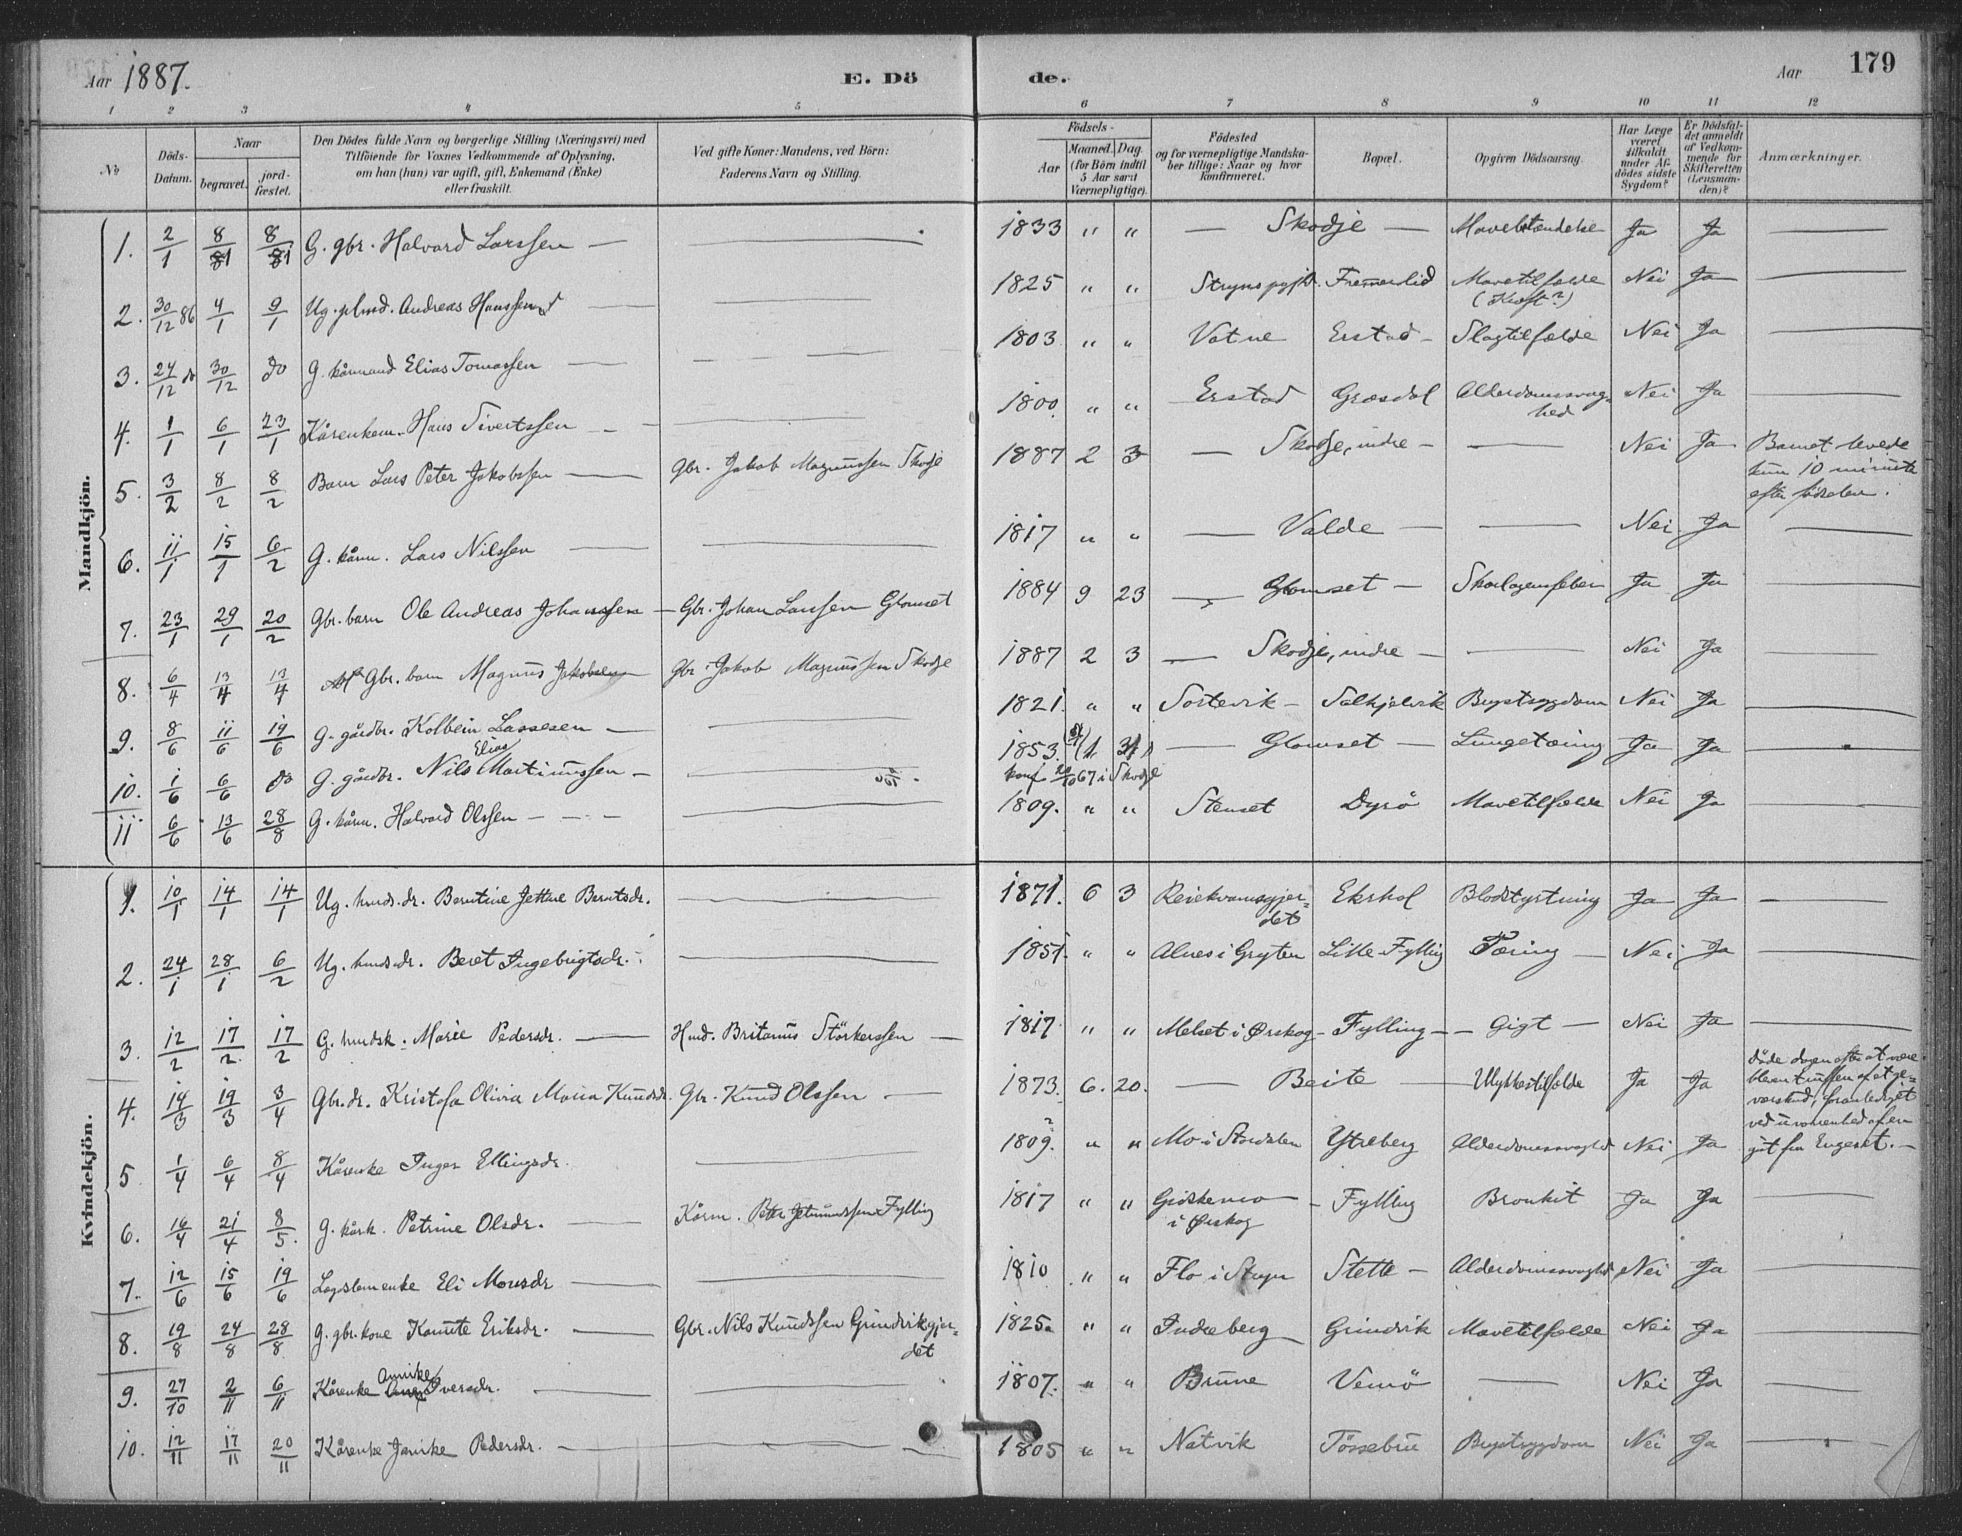 Aar 1887. E. Dö de. Aar 179
1 2 3 4 5 6 7 8 9 10 11 12
No
Döds-Datum.
Naar
begravet.
jord-fæstet.
Den Dödes fulde Navn og borgerlige Stilling (Næringsvei) med
Tilföiende for Voxnes Vedkommende af Oplysning,
om han (hun) var ugift, gift, Enkemand (Enke)
eller fraskilt.
Ved gifte Koner: Mandens, ved Börn:
Faderens Navn og Stilling.
Födsels-
Aar
Maaned. Dag.
(for Börn indtil
5 Aar samt
Værnepligtige).
Födested
og for værnepligtige Mandska-
ber tillige: Naar og hvor
konfirmeret.
Bopæl.
Opgiven Dödsaarsag.
Har Læge
været
tilkaldt
under Af-
dödes sidste
Sygdom?
Er Dödsfal-
det anmeldt
af Vedkom-
mende for
Skifteretten
(Lensman-
den)?
Anmærkninger.
Mandkjön.
1. 2/1 8/1 8/1 G. gbr. Halvard Larssen — 1833 " " — Skodje — Mavebetændelse Ja Ja
2. 30/12 86 4/1 9/1 Ug. Andreas Hanssen — 1825 " " Fremerlid Mavetilfælde (Kræft?) Nei Ja
3. 24/12 do 30/12 do G. kårmand Elias Tomassen — 1803 " " Vatne Erstad Slagtilfælde Nei Ja
4. 1/1 6/1 23/1 Kårenkem. Hans Sivertssen — 1800. " " Erstad Græsdal Alderdomssvag-hed Nei Ja
5. 3/2 8/2 8/2 Barn Lars Peter Jakobssen — Gbr. Jakob Magnussen Skodje 1887 2 3 — Skodje, indre — Nei Ja Barnet levede kun 10 minute efter fødselen.
6. 11/1 15/1 6/2 G. kårm. Lars Nilssen — 1817 " " — Valde — Nei Ja
7. 23/1 29/1 20/2 Gbr. barn Ole Andreas Johanssen — Gbr. Johan Larssen Glomset 1884 9 23 — Glomset — Skarlagensfeber Ja Ja
8. 6/4 13/4 13/4 Gbr. barn Magnus Jakobsen Gbr. Jakob Magnussen Skodje 1887 2 3 — Skodje, indre — Nei Ja
9. 8/6 11/6 19/6 G. gårdbr. Kolbein Lassesen — 1821. " " Sortevik — Solhjelvik Brystsygdom Nei Ja
10. 1/6 6/6 do G. gårdbr. Nils Elias Martinussen — 1853. — Glomset — Lungetæring Ja Ja
konf. 67 i Skodje
11 6/6 13/6 28/8 G. kårm. Halvard Olssen — 1809. " " Stenset Dyrö Mavetilfælde Nei Ja
Kvindekjön.
1. 10/1 14/1 14/1 Ug. husds. dr. Berntine Jettine Berntsdr. 1871. 6 3 Reiekvamsgjer-det Ekshol Blodstyrtning Ja Ja
2. 24/1 28/1 6/2 Ug. husdsdr. Beret Ingebrigtsdr. 1851. " " Alnes i Gryten Lille-Fylling Tæring Nei Ja
3. 12/2 17/2 17/2 G. husdsk. Marie Pedersdr. — Husd. Britanus Störkerssen — 1817 " " Melset i Ørskog — Fylling — Gigt — Nei Ja
4. 14/3 19/3 3/4 Gbr. dr. Kristofa Olivia Maria Knudsdr. Gbr. Knud Olssen — 1873. 6. 20. — Beite — Ulykkestilfælde Ja Ja døde dagen efter at være bleven truffen af et ge-værskud, foranlediget ved uvorenhed af en gut fra Engeset.
5 1/4 6/4 8/4 Kårenke Inger Ellingsdr. 1809.? " " Mo i Stordalen Ytreberg Alderdomssvaghd Nei Ja
6. 16/4 21/4 8/5. G. kårk. Petrine Olsdr. — Kårm. Peter Fylling 1817 " " Giskemo i Ørskog — Fylling Bronkit Ja Ja
7. 12/6 15/6 19/6 Lægdslemenke Eli Monsdr — 1810 " " Flo i Stryn Stette — Alderdomssvaghd Nei Ja
8. 19/8 24/8 28/8 G. gbr. kone Karnte Eriksdr. — Gbr. Nils Knudssen Grindvikgjer-det 1825. " " Indreberg Grindvik Mavetilfælde Nei Ja
9. 27/10 2/11 6/11 Kårenke Annike Iversdr. — 1807. " " Brune Vemö — Nei Ja
10. 12/11 17/11 20/11 Kårenke Janike Pedersdr. — 1805 " " Natvik Tössebro Brystsygdom Nei Ja